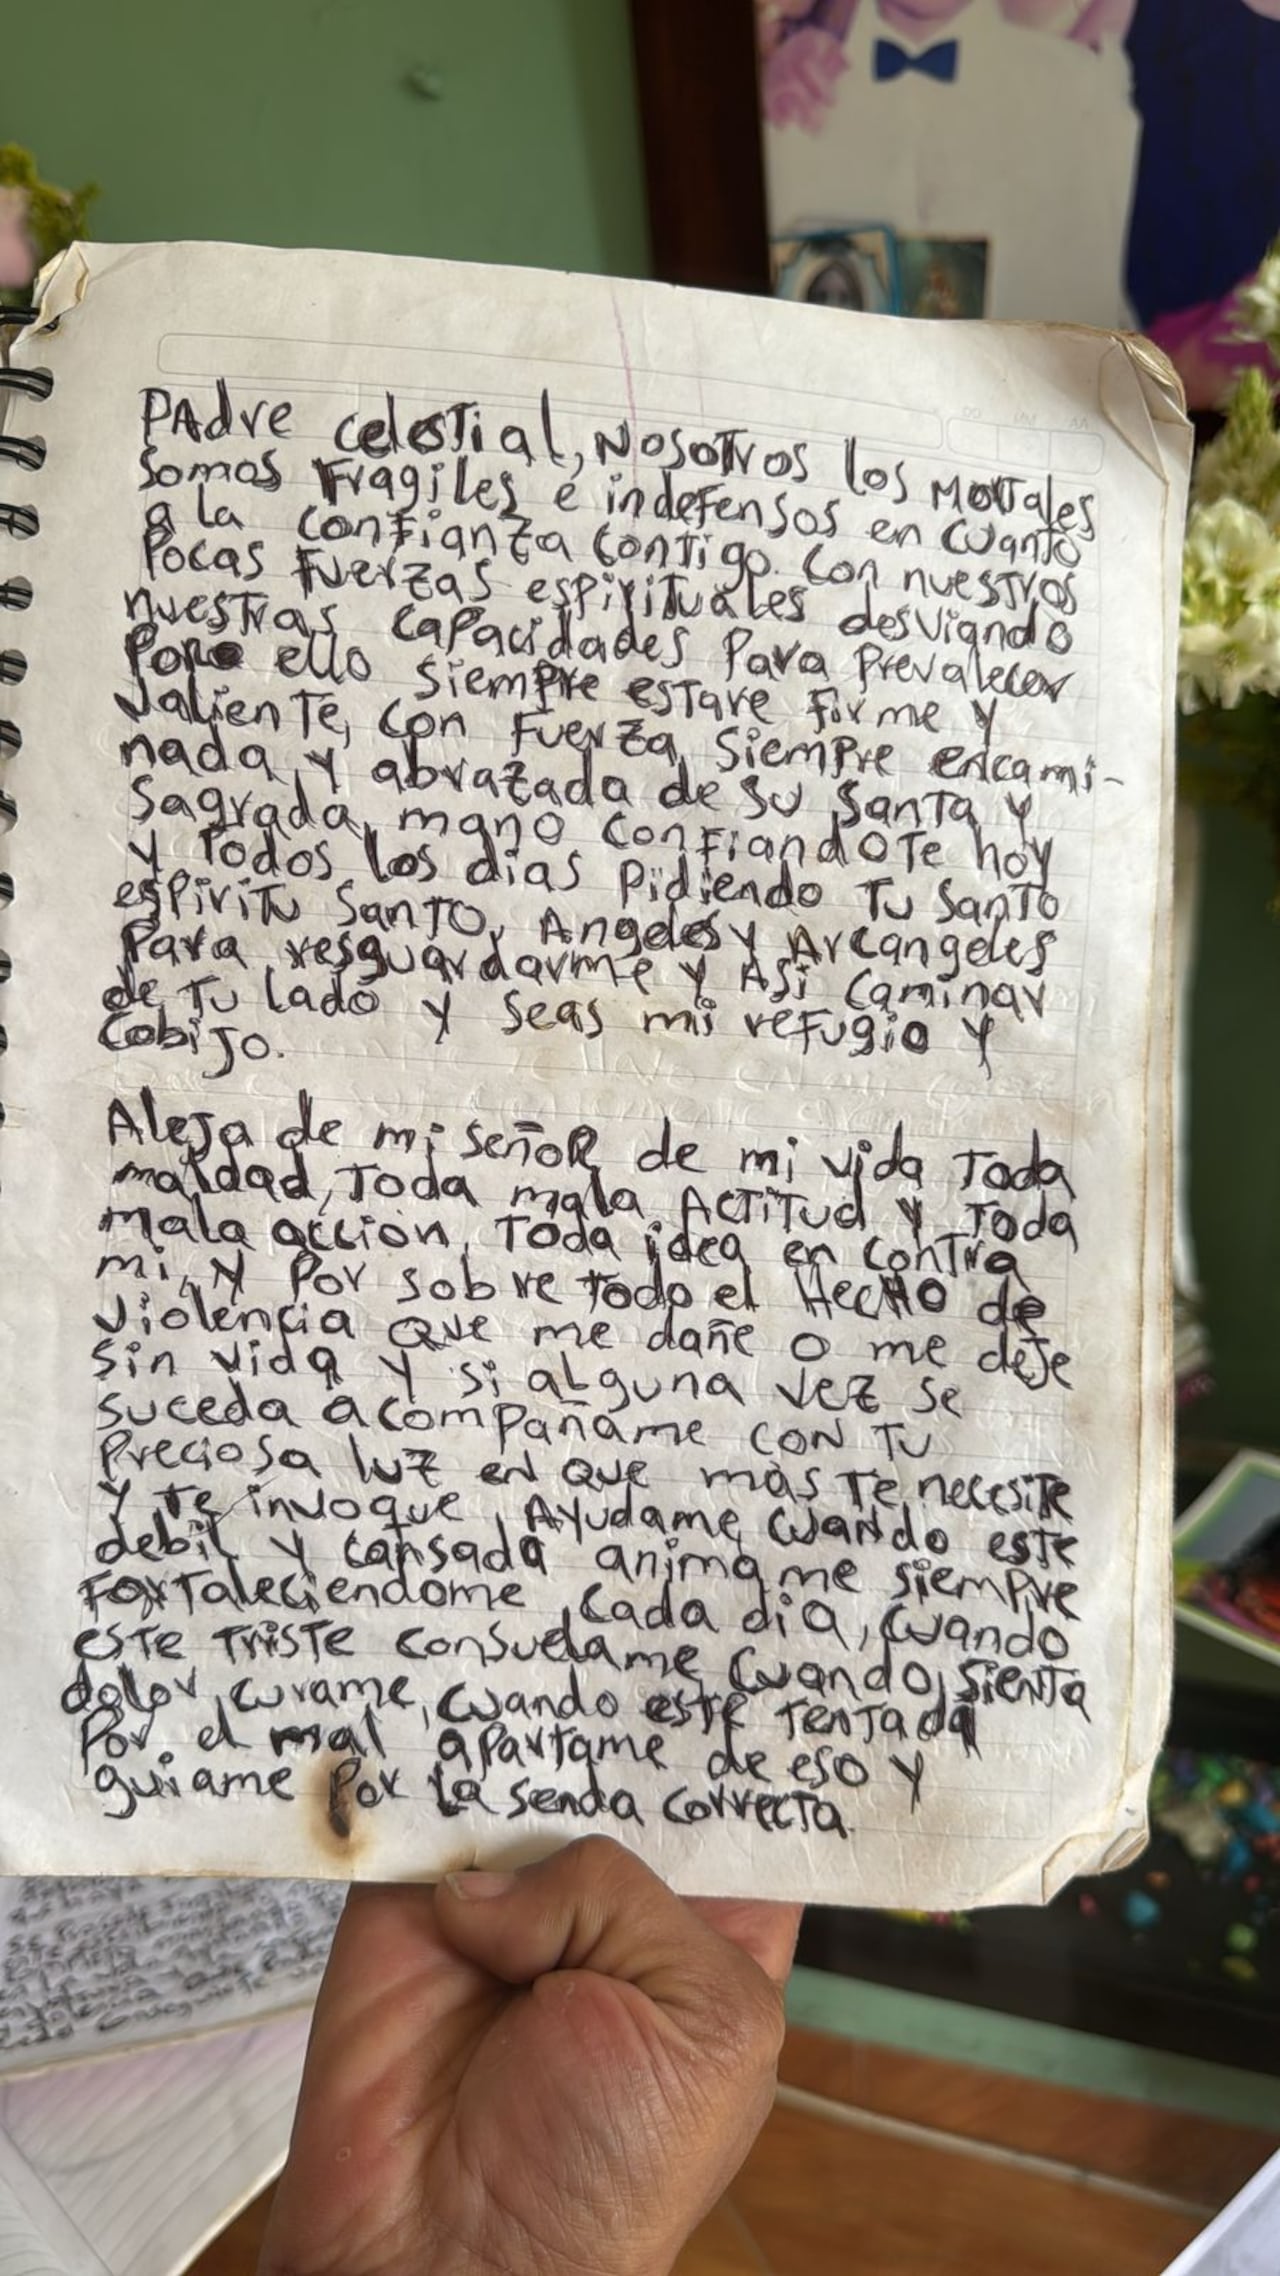 PAdre celestial, Nosotros los Mortales
somos Fragiles e indefensos en cuanto
a la confianza contigo. Con nuestros
Pocas Fuerzas espirituales desviando
nuestras capacidades Para Prevalecer
ello siempre estare firme y
valiente, con Fuerza, siempre encami-
nada y abrazada de su santa y
sagrada mano confiandote hoy
y Todos los dias Pidiendo Tu santo
espiritu santo, Angeles y Arcangeles
Para resguardarme y Asi caminar
de Tu lado y seas mi refugio y
Cobijo.
Aleja de mi señor de mi vida Toda
maldad, Toda mala Actitud y Toda
mala accion, Toda idea en contra
mi, y Por sobre todo el Hecho de
violencia que me dañe o me deje
sin vida y si alguna vez se
suceda acompañame con tu
Preciosa luz en que mas te necesite
y te invoque, Ayudame cuando este
debil y cansada animame siempre
Fortaleciendome, cada dia, cuando
este Triste consuelame cuando sienta
dolor, curame, cuando este Tentada
Por el mal apartame de eso y
guiame Por la senda correcta.